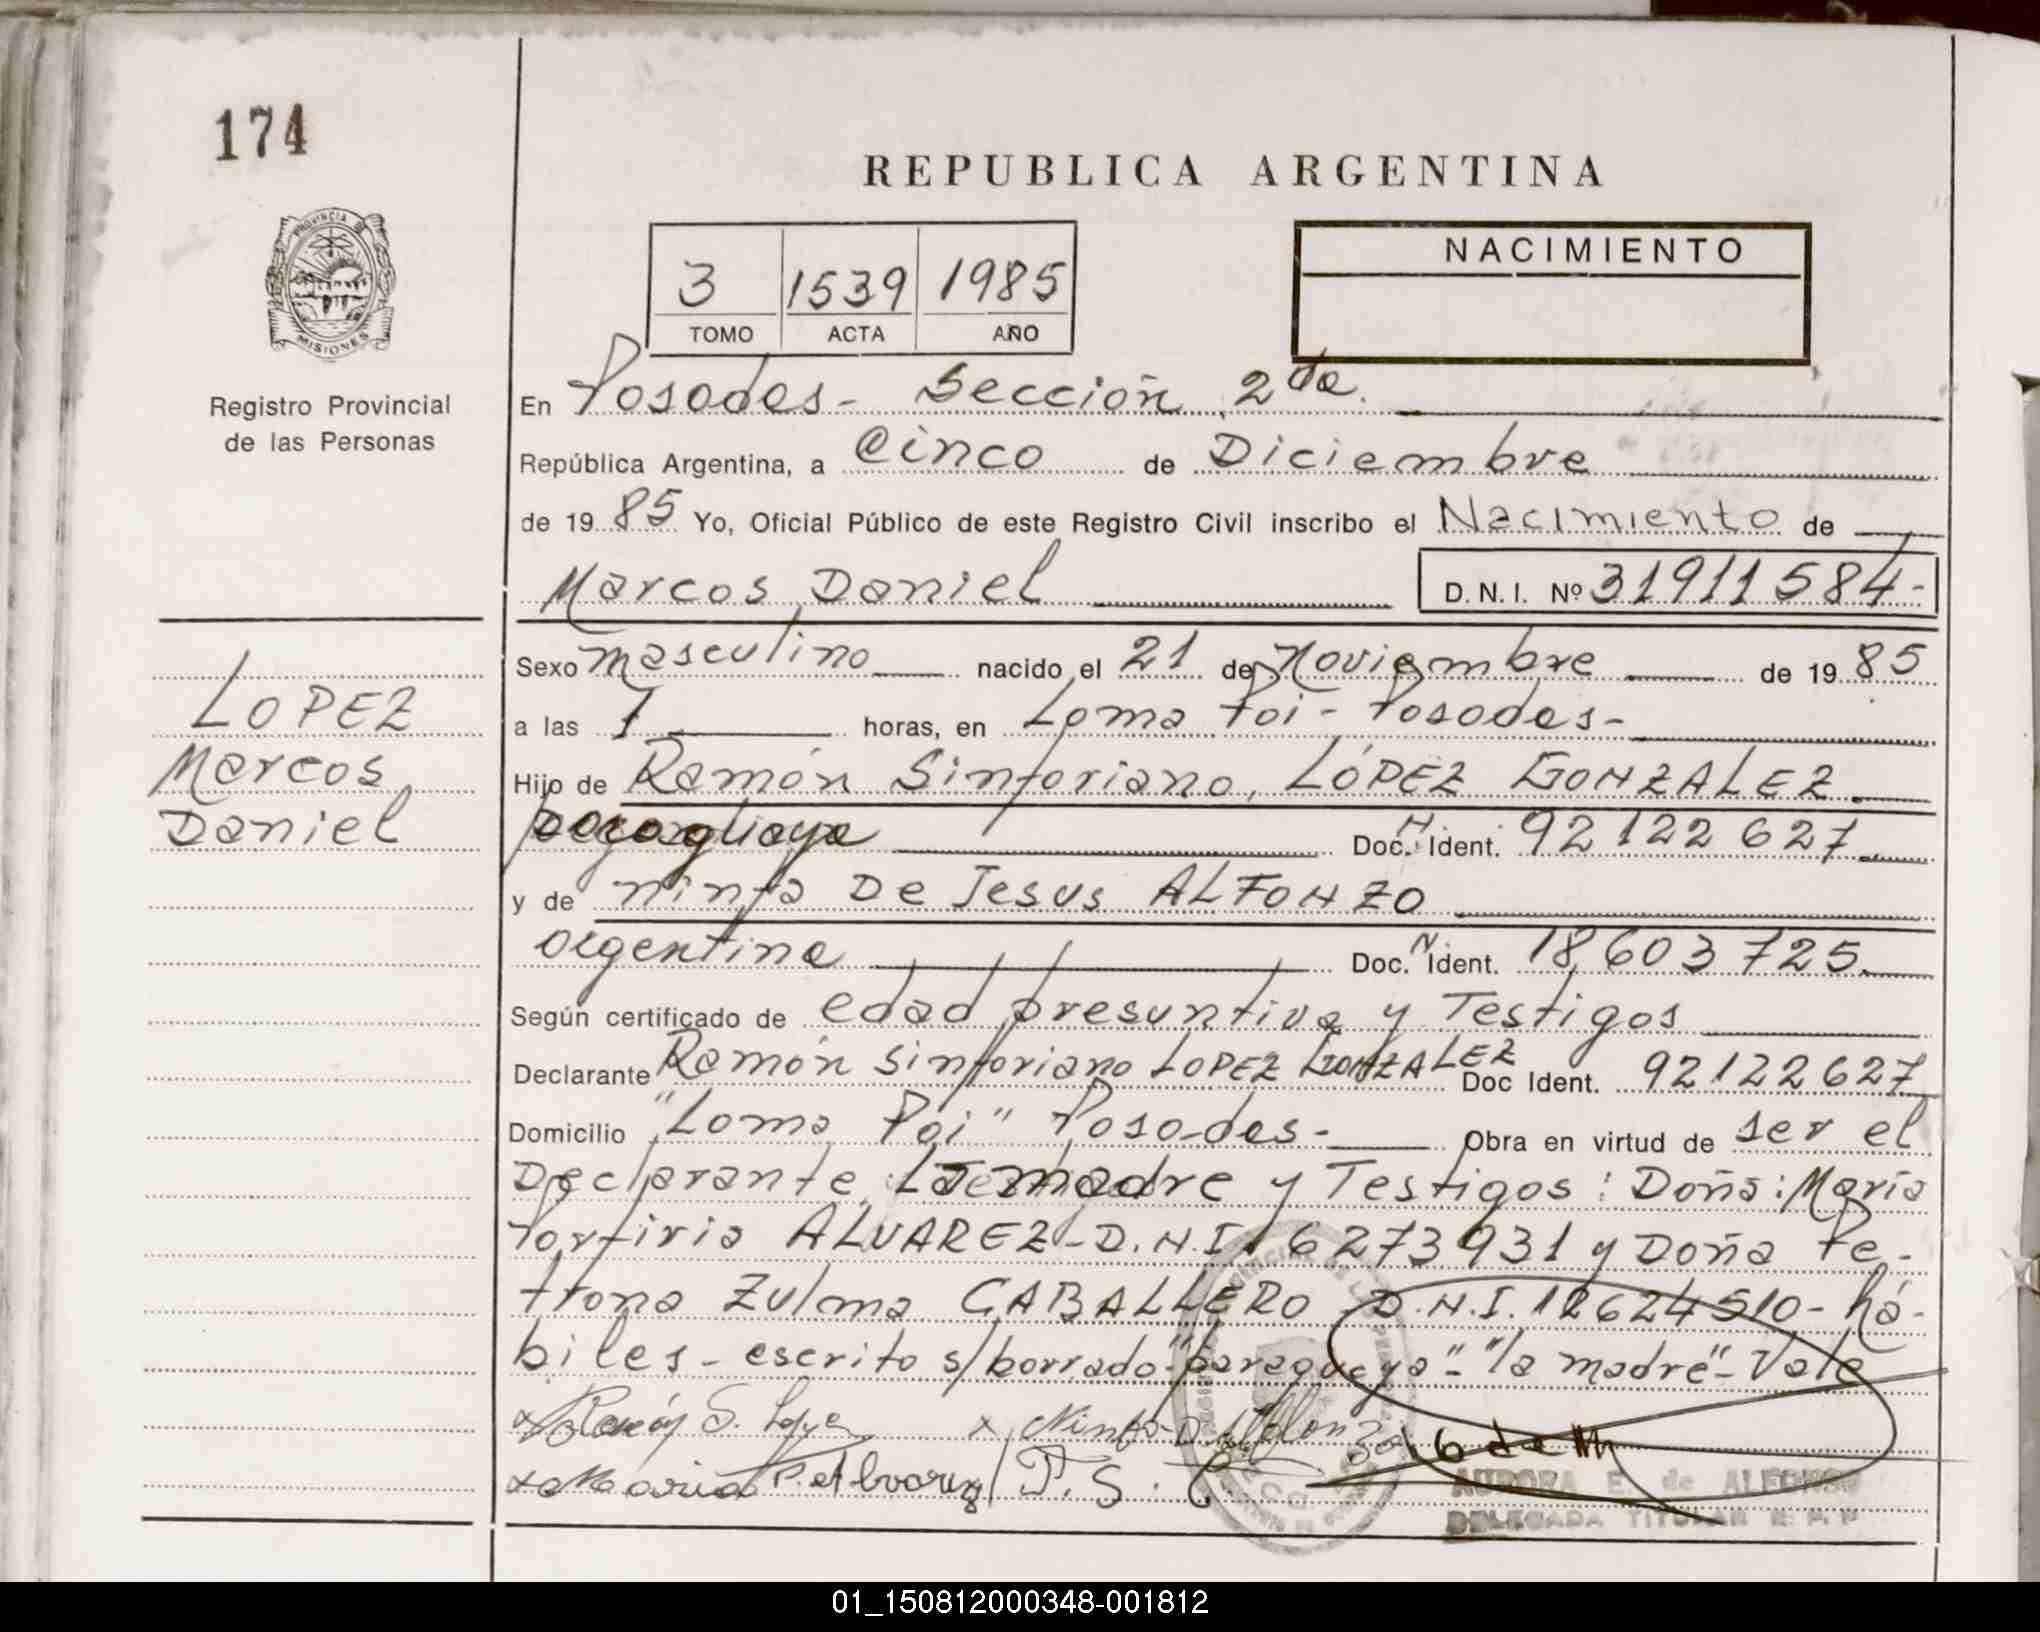 174
REPUBLICA ARGENTINA
PROVINCIA DE
MISIONES
Registro Provincial
de las Personas
3 1539 1985
TOMO ACTA AÑO
NACIMIENTO
En Posadas - Sección 2da.
República Argentina, a Cinco de Diciembre
de 19 85 Yo, Oficial Público de este Registro Civil inscribo el Nacimiento de
Marcos Daniel D.N.I. Nº 31911584-
Sexo masculino nacido el 21 de Noviembre de 19 85
a las 7 horas, en Loma Poi - Posadas -
Hijo de Ramón Sinforiano, LÓPEZ GONZALEZ.
paraguaya Doc. N Ident. 92122627.
y de ninfa De Jesus ALFONZO
argentina Doc. N Ident. 18,603725.
Según certificado de edad presuntiva y Testigos
Declarante Ramón Sinforiano LOPEZ GONZALEZ Doc Ident. 92122627
Domicilio "Loma Poi" Posadas - Obra en virtud de ser el
Declarante, La madre y Testigos: Doña: María
Porfiria ALVAREZ - D.N.I. 6273931 y Doña Pe-
trona Zulma CABALLERO D.N.I. 12624510 - há-
biles - escrito s/borrado "paraguaya" - "la madre" - Vale
x Ramón S. Lopez x Ninfa D. Alfonzo
x Maria P. Alvarez P. S. C.
AURORA E. de ALFONSO
DELEGADA TITULAR R. P. P.
LOPEZ
Marcos
Daniel
01_150812000348-001812